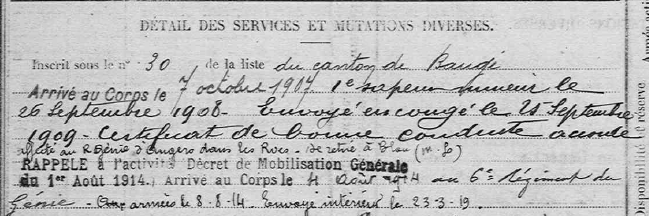 DÉTAIL DES SERVICES ET MUTATIONS DIVERSES.
Inscrit sous le n° 30 de la liste du canton de Baugé
Arrivé au Corps le 7 octobre 1907. 1e sapeur mineur le
26 Septembre 1908 - Envoyé en congé le 25 Septembre
1909 - Certificat de bonne conduite accordé
affecté au Génie d'Angers dans les Rés. - Se retire à
RAPPELÉ à l'activité Décret de Mobilisation Générale
du 1er Août 1914. Arrivé au Corps le 4 Août 1914 au 6e Régiment du
Génie - armées le 8-8-14. Envoyé intérieur le 23-3-19.